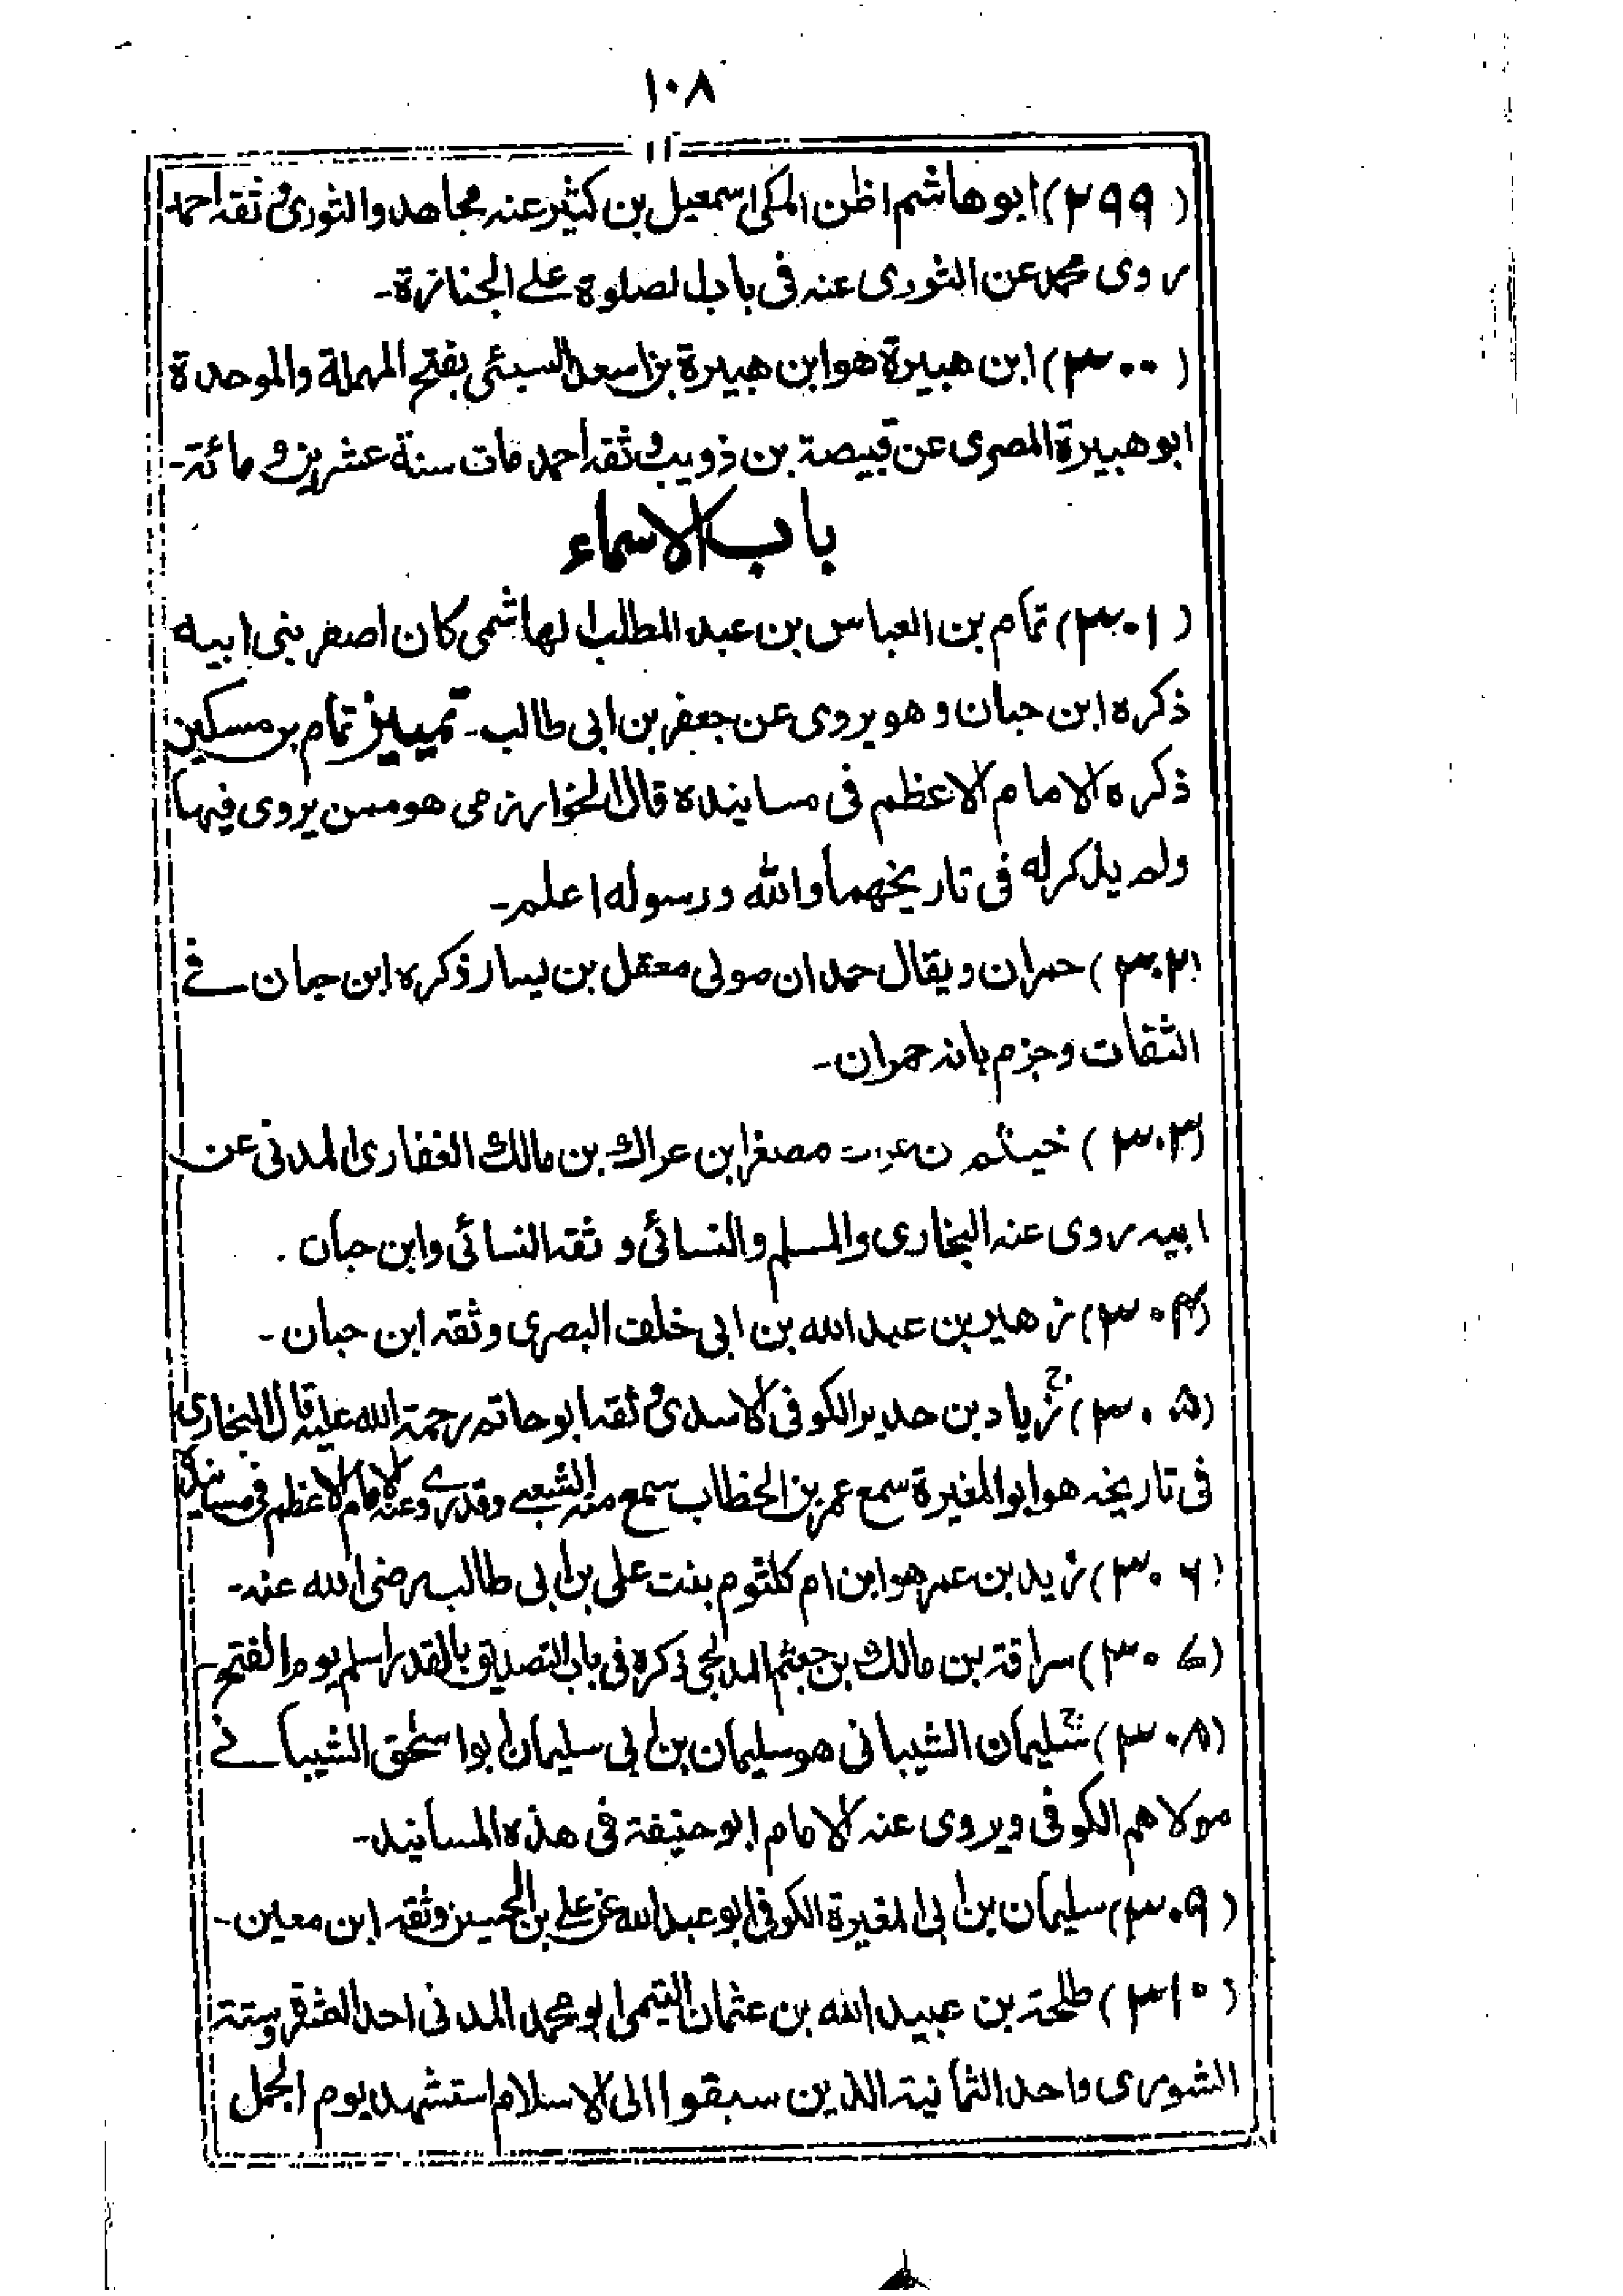 ١٠٨
(٢٩٩) ابوهاشم اظن المكى اسمعيل بن كثير عنه مجاهد والثورى وثقه احمد
روى محمد عن الثورى عنه فى باب الصلوة على الجنازة۔
(٣٠٠) ابن هبيرة هو ابن هبيرة بن اسعد السبئى بفتح المهملة والموحدة
ابو هبيرة المصرى عن قبيصة بن ذويب وثقه احمد مات سنة عشرين و مائة۔
باب الاسماء
(٣٠١) تمام بن العباس بن عبد المطلب الهاشمى كان اصغر بنى ابيه
ذكره ابن حبان وهو يروى عن جعفر بن ابى طالب۔ تمييز تمام بن مسكين
ذكره الامام الاعظم فى مسانيده قال الخوارزمى هو ممن يروى فيها
ولم يذكر له فى تاريخهما والله ورسوله اعلم۔
(٣٠٢) حمران ويقال حمدان مولى معقل بن يسار ذكره ابن حبان فے
الثقات وجزم بانه حمران۔
(٣٠٣) خيثم مصغرا بن عراك بن مالك الغفارى المدنى عن
ابيه روى عنه البخارى والمسلم والنسائى وثقه النسائى وابن حبان۔
(٣٠٤) زهير بن عبد الله بن ابى خلف البصرى وثقه ابن حبان۔
(٣٠٥) زياد بن حدير الكوفى الاسدى وثقه ابو حاتم رحمة الله عليه قال البخارى
فى تاريخه هو ابو المغيرة سمع عمر بن الخطاب سمع منه الشعبے وقد روے عنه الامام الاعظم فى مسانيده
(٣٠٦) زيد بن عمر هو ابن ام كلثوم بنت على بن ابى طالب رضى الله عنه۔
(٣٠٧) سراقة بن مالك بن جعثم المدلجى ذكره فى باب التصديق بالقدر اسلم يوم الفتح۔
(٣٠٨) سليمان الشيبانى هو سليمان بن ابى سليمان ابو اسحٰق الشيبانے
مولاهم الكوفى ويروى عنه الامام ابو حنيفة فى هذه المسانيد۔
(٣٠٩) سليمان بن ابى المغيرة الكوفى ابو عبد الله عن على بن الحسين وثقه ابن معين۔
(٣١٠) طلحة بن عبيد الله بن عثمان التيمى ابو محمد المدنى احد العشرة وستة
الشورى واحد الثمانية الذين سبقوا الى الاسلام استشهد يوم الجمل